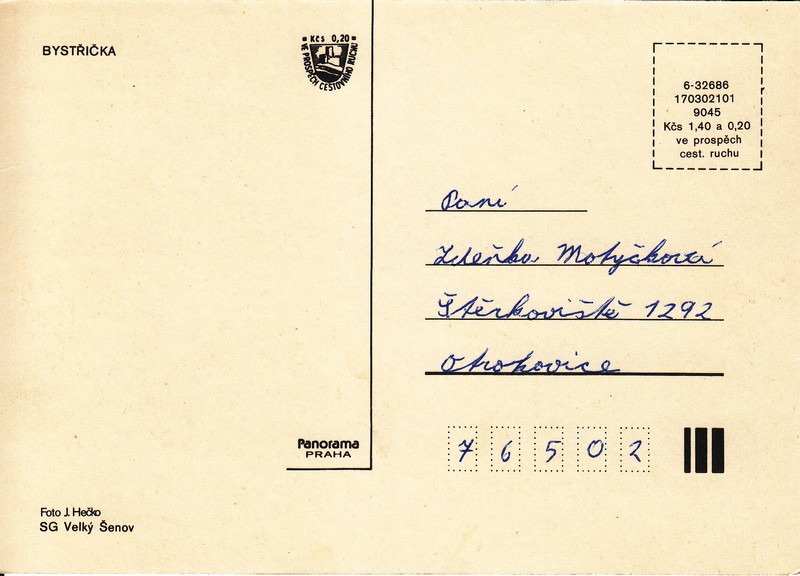 BYSTŘIČKA
Kčs 0,20
VE PROSPĚCH CESTOVNÍHO RUCHU
6-32686
170302101
9045
Kčs 1,40 a 0,20
ve prospěch
cest. ruchu
Paní
Zdeňka Motyčková
Štěrkoviště 1292
Otrokovice
76502
Panorama
PRAHA
Foto J. Hečko
SG Velký Šenov